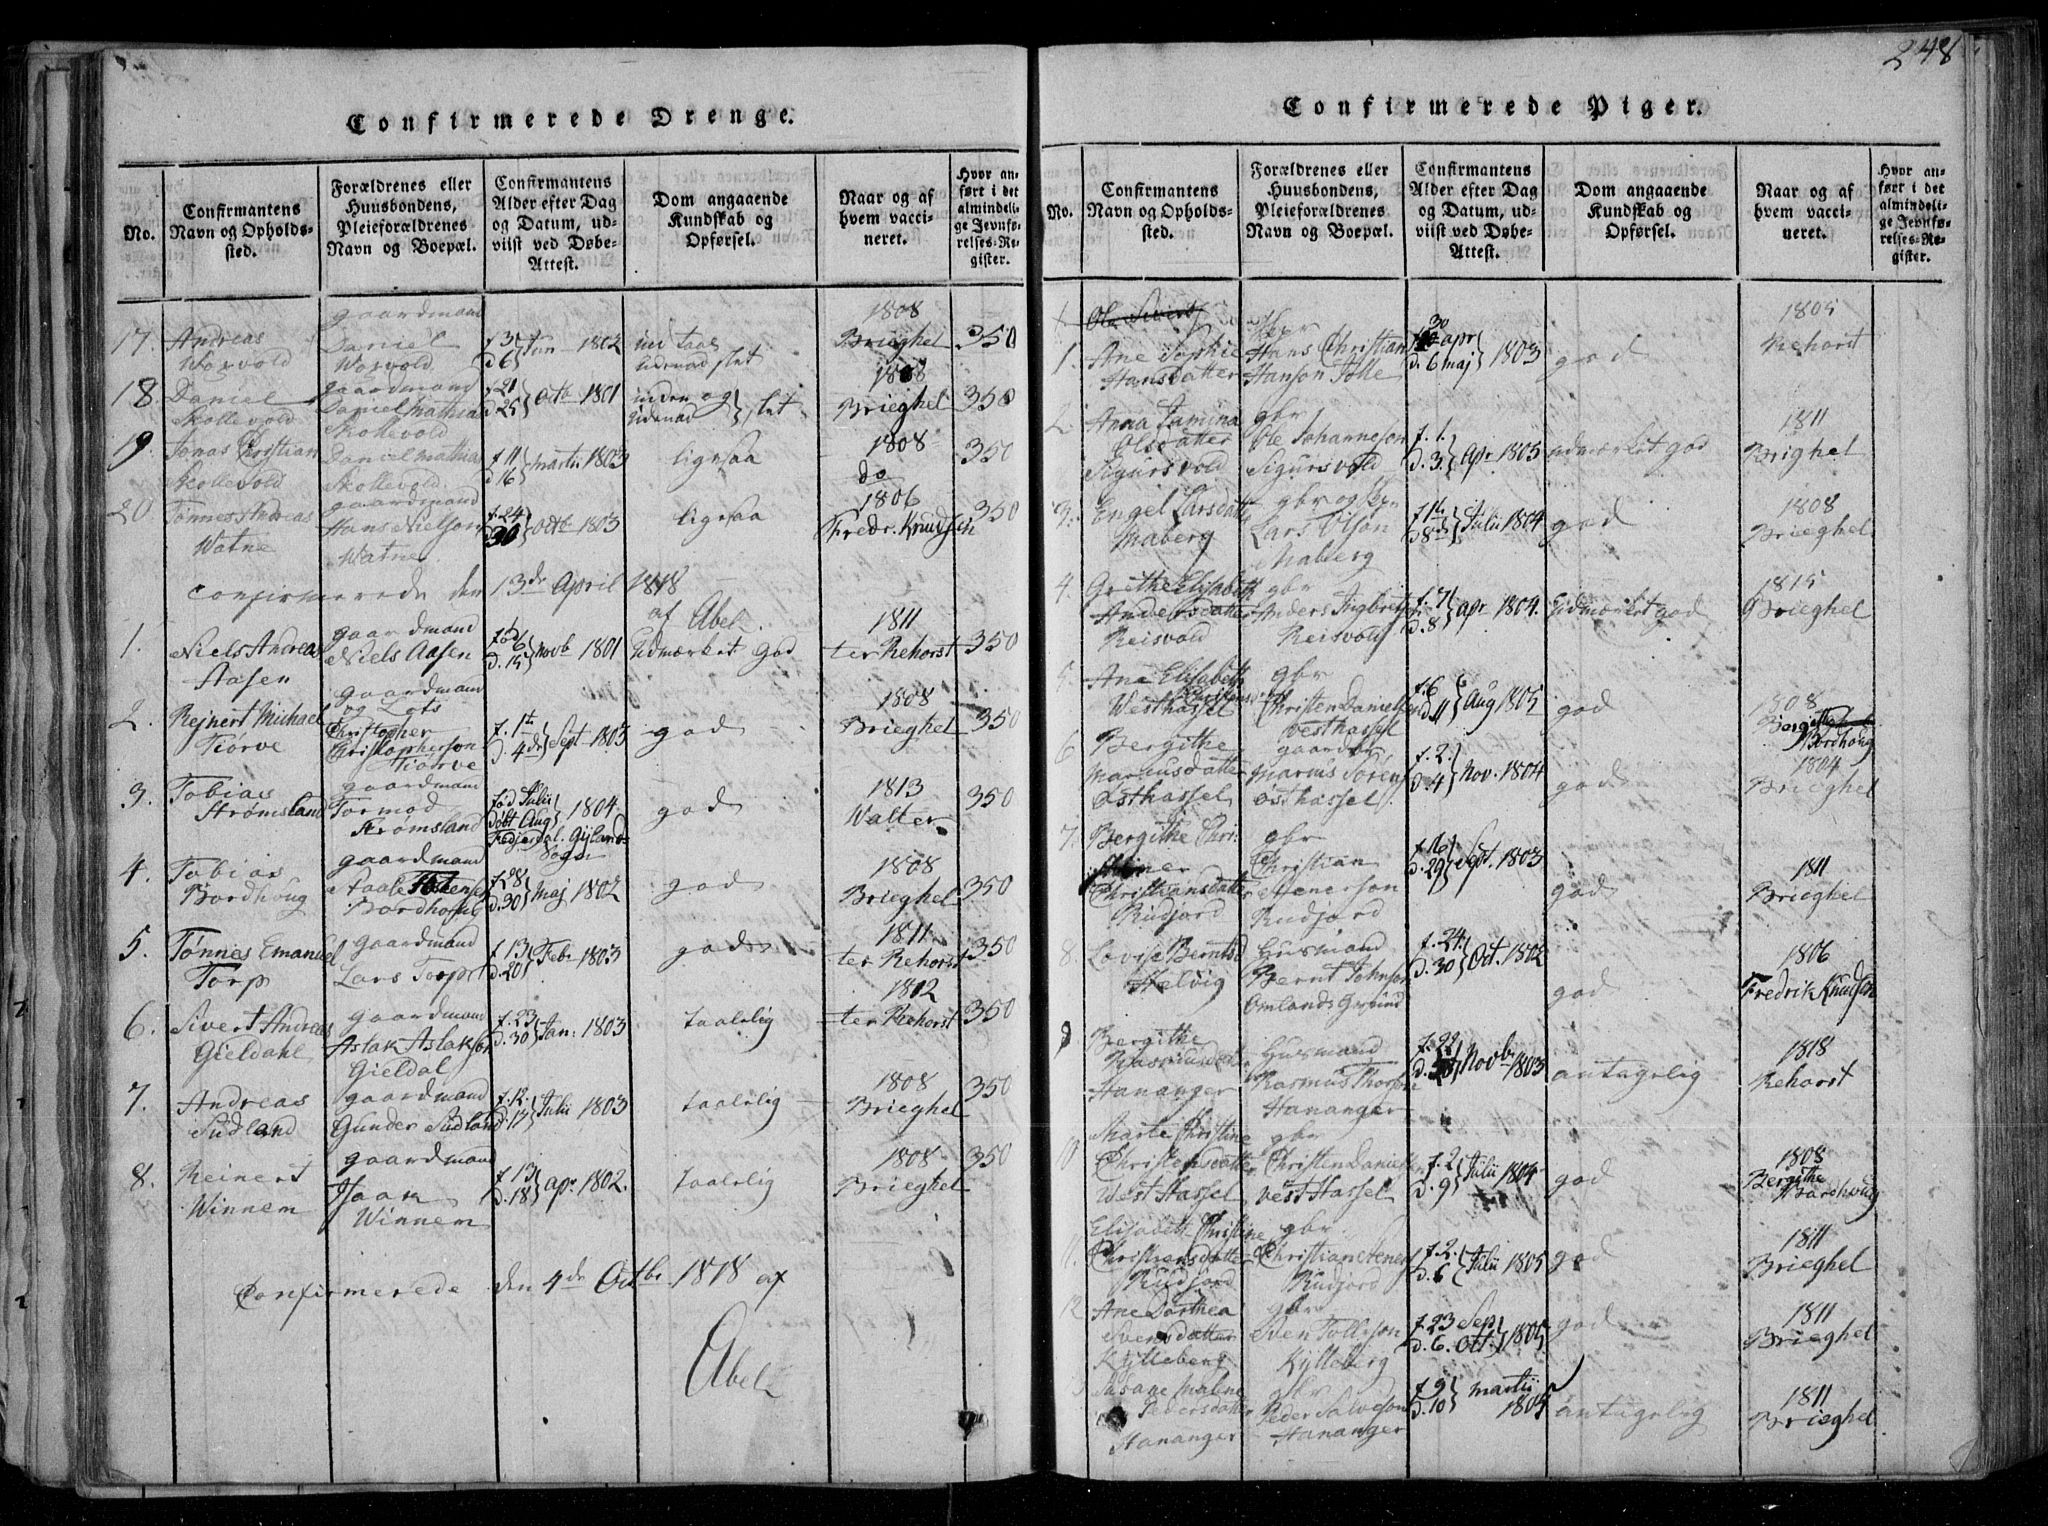 248
Confirmerede Drenge.
No.
Confirmantens Navn og Opholds-sted.
Forældrenes eller Huusbondens, Pleieforældrenes Navn og Boepæl.
Confirmantens Alder efter Dag og Datum, ud-viist ved Døbe-Attest.
Dom angaaende Kundskab og Opførsel.
Naar og af hvem vacci-neret.
Hvor an-ført i det almindeli-ge Jevnfø-relses-Re-gister.
17 Andreas Worvold
gaardmand Daniel Worvold
f 3 d 6 Jun 1802
1808 Brieghel
350
18. Daniel Skollevold
gaardmand Daniel Mathias Skollevold
f 21 d 25 Octb 1801
inden og udenad slet
1808 Brieghel
350
19. Jonas Christian Skollevold
Daniel Mathias Skollevold
f 11 d 16 Martii 1803
ligesaa
1808 do
350
20 Tønnes Andreas Watne
gaardmand Hans Nielson Watne
f. 24 30 Octb 1803
ligesaa
1806 Fredr. Knudsen
350
confirmerede den 13de April 1818 af Abel.
1. Niels Andreas Aasen
gaardmand Niels Aasen
fød 6 d. 15 Novb 1801
Udmærket god
1811 ter Rehorst
350
2. Rejnert Michael Tiørve
gaardmand og Lots Christopher Christopherson Tiørve
f. 1t d. 4de Sept 1803
god
1808 Brieghel
350
3. Tobias Strømsland
gaardmand Tormod Strømsland
fød Julii døbt Aug 1804
god
1813 Walter
350
4. Tobias Bordhoug
gaardmand
f. 28 d. 30 Maj 1802
god
1808 Brieghel
350
5. Tønnes Emanuel Torp
gaardmand Lars Torp
f. 13 d. 20 Feb 1803
god
1811 ter Rehorst
350
6. Sivert Andreas Gieldahl
gaardmand Aslak Aslakson Gieldal
f. 23 d. 30 Jan: 1803
taalelig
1812 ter Rehorst
350
7. Andreas Sudland
gaardmand Gunder Sudland
f. 12. d. 17 Julii 1803
taalelig
1808 Brieghel
350
8. Reinert Winnem
gaardmand Isaak Winnem
f. 13 d. 18 apr 1802.
taalelig
1808 Brieghel
350
Confirmerede den 4de Octbr 1818 af
Abel
Confirmerede Piger.
No.
Confirmantens Navn og Opholds-sted.
Forældrenes eller Huusbondens, Pleieforældrenes Navn og Boepæl.
Confirmantens Alder efter Dag og Datum, ud-viist ved Døbe-Attest.
Dom angaaende Kundskab og Opførsel.
Naar og af hvem vacci-neret.
Hvor an-ført i det almindeli-ge Jevnfø-relses-Re-gister.
1. Ane Sophie Hansdatter
Hans Christian Hanson Tolle
30 apr d. 6 maj 1803
god
1805 Rehorst
2. Anna Tamina Olsdatter Sigursvold
gbr Ole Johanneson Sigursvold
f. 1. d. 3. Apr 1805
udmærket god
1811 Brighel
3. Engel Larsdatter Maberg
gbr Lars Olson Maberg
Julii 1804
god
1808 Brieghel
4. Grethe Elisabeth Andersdatter Reisvold
gbr Anders Ingbretson Reisvold
f. 7 d. 8 apr 1804.
Udmærket god
1815 Brieghel
5. Ane Elisabeth Westhassel
gbr Christen Danielsen Vesthassel
f. 6 d. 11 Aug 1805
god
1808 Bergithe Bordhoug
6 Bergithe Marcusdatter Østhassel
gaardbr Marcus Sørens Østhassel
f. 2. d. 4 Nov. 1804
god
1804 Brieghel
7. Bergithe Christiansdatter Rudjord
gbr Christian Stenerson Rudjord
f. 16 d. 29 Sept. 1803
god
1811 Brieghel
8. Lovise Berntsd Helvig
Husmand Bernt Johnson Omlands Grund
f. 24. d. 30 Oct. 1802
god
1806 Fredrik Knudsen
9 Bergithe Rasmusdatter Hananger
Husmand Rasmus Thorson Hananger
f. 22 Novb 1803
antagelig
1818 Rehorst
10 Marte Christine Christensdatter West Hassel
gbr Christen Danielsen Vest Hassel
f. 2. d. 9 Julii 1804
god
1808 Bergithe Bordhoug
11. Elisabeth Christine Christiensdatter Rudjord
gbr. Christian Steners Rudjord
f. 2. d. 6 Julii 1805
god
1811 Brieghel
12 Ane Dorthea Svensdatter Kylleberg
gbr Sven Tollifson Kylleberg
f. 23 Sep d. 6. Oct. 1805
god
1811 Brieghel
Susane Malene Pedersdatter Hananger
gbr Peder Salveson Hananger
f. 9 d. 10 Martij
antagelig
1811 Brieghel